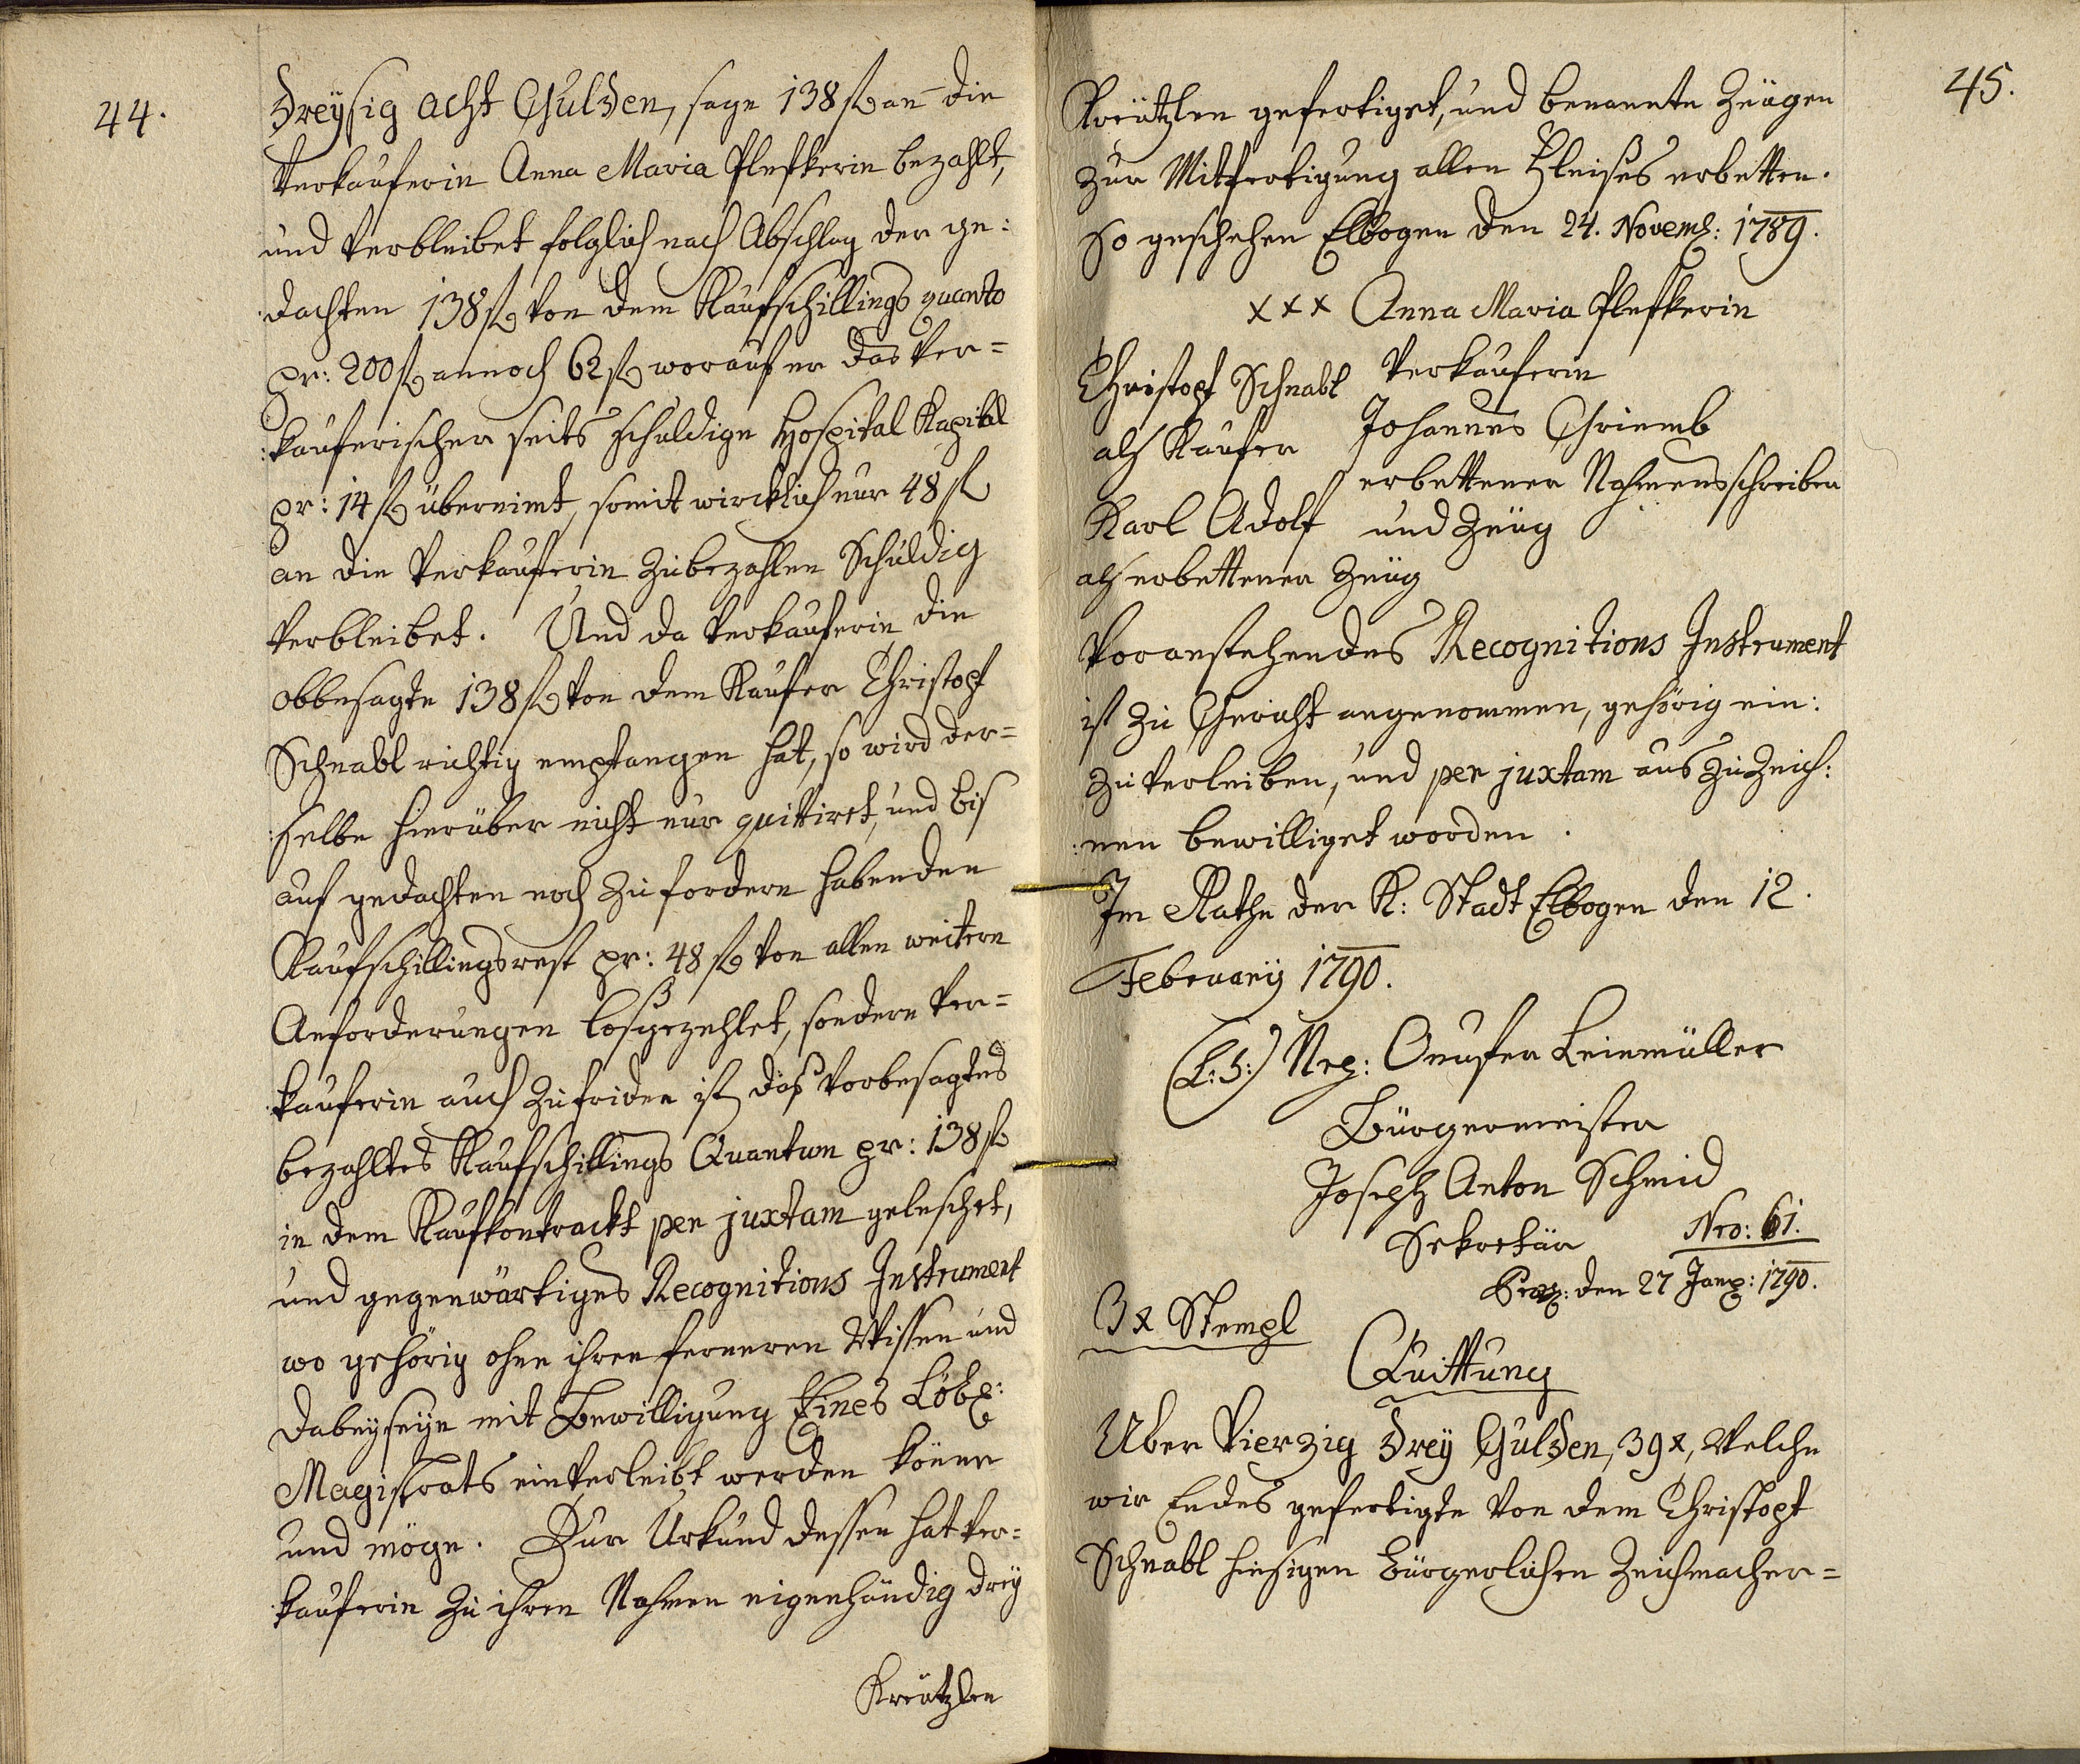 44.
Dreÿsig acht Gulden, sage 138 fl an die
Verkauferin Anna Maria Plefkerin bezahlt,
und verbleibet folglich nach Abschlag der ge:
dachten 138 fl von dem Kaufschillings quanto
pr: 200 fl annoch 62 fl worauf er das Ver=
:kauferischer seits schuldige Hospital Kapital
pr: 14 fl übernimt, somit wircklich nur 48 fl
an die Verkauferin zubezahlen Schuldig
verbleibet. Und da Verkauferin die
obbesagte 138 fl von dem Kaufer Christoph
Schnabl richtig empfangen hat, so wird der=
:selbe hierüber nicht nur quittiret, und bis
auf gedachten noch zu fordern habenden
Kaufschillingsrest pr: 48 fl von allen weitern
Anforderungen losgezehlet, sondern Ver=
:kauferin auch zufriden ist, daß vorbesagtes
bezahltes Kaufschillings Quantum pr: 138 fl
in dem Kaufkontrackt per juxtam geleschet,
und gegenwärtiges Recognitions Instrument
wo gehörig ohne ihren ferneren Wissen und
Dabeyseyn mit Bewilligung Eines Löbl:
Magistrats einverleibt werden könne
und möge. Zur Urkund dessen hat Ver=
:kauferin zu ihren Nahmen eigenhändig dreÿ
Kreützlen
45.
Kreützlen gefertiget, und benannte Zeügen
zur Mitfertigung allen Fleises erbetten.
So geschehen Elbogen den 24. Novemb: 1789.
xxx Anna Maria Plefkerin
Verkauferin
Christoph Schnabl
als Kaufer
Johannes Griemb
erbettener Nahmensschreiber
und Zeüg
Karl Adolf
als erbettener Zeüg
Voranstehendes Recognitions Instrument
ist zu Gericht angenommen, gehörig ein:
zuverleiben, und per juxtam aus zu Zeich:
:nen bewilliget worden.
Im Rathe der K: Stadt Elbogen den 12.
Februarÿ 1790.
(L: S:) Onufer Leinmüller
Bürgermeister
Joseph Anton Schmid
Sekretär
Nro: 61.
Praes: den 27 Janr: 1790.
3 x Stempl
Quittung
Uber Vierzig dreÿ Gulden, 39 x, Welche
wir Endes gefertigte von dem Christoph
Schnabl hiesigen Bürgerlichen Zeichmacher=